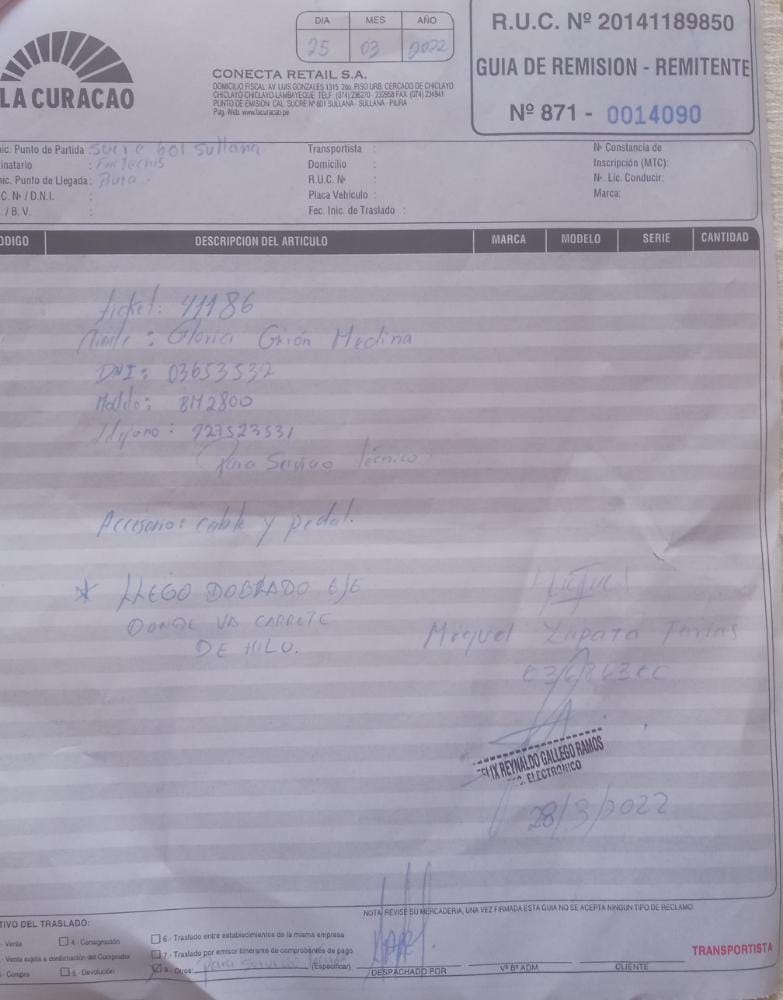 DIA MES AÑO
25 03 2022
R.U.C. Nº 20141189850
GUIA DE REMISION - REMITENTE
Nº 871 - 0014090
LA CURACAO
CONECTA RETAIL S.A.
DOMICILIO FISCAL: AV. LUIS GONZALES 1315 2do. PISO URB. CERCADO DE CHICLAYO
CHICLAYO-CHICLAYO-LAMBAYEQUE TELF.: (074) FAX: (074)
PUNTO DE EMISION: CAL. SUCRE Nº 601 SULLANA - SULLANA - PIURA
Pag. Web: www.lacuracao.pe
nic. Punto de Partida : Sucre 601 Sullana
inatario :
nic. Punto de Llegada : Piura -
C. Nº / D.N.I. :
. / B. V. :
Transportista :
Domicilio :
R.U.C. Nº :
Placa Vehículo :
Fec. Inic. de Traslado :
Nº Constancia de
Inscripción (MTC):
Nº. Lic. Conducir:
Marca:
ODIGO DESCRIPCION DEL ARTICULO MARCA MODELO SERIE CANTIDAD
ticket: 41186
: Gloria Girón Medina
DNI: 03653532
: BM2800
: 927523531
Para Servicio técnico
Accesorio: cable y pedal.
* LLEGO DOBLADO EJE
DONDE VA CARRETE
DE HILO.
Miguel Zapata Farias
ELIX REYNALDO GALLEGO RAMOS
ELECTRONICO
28/3/2022
NOTA: REVISE SU MERCADERIA, UNA VEZ FIRMADA ESTA GUIA NO SE ACEPTA NINGUN TIPO DE RECLAMO.
TIVO DEL TRASLADO:
- Venta
- Venta sujeta a confirmación del Comprador
- Compra
4.- Consignación
5.- Devolución
6.- Traslado entre establecimientos de la misma empresa
7.- Traslado por emisor itinerante de comprobantes de pago
8.- Otros: para servicio (Especificar)
DESPACHADO POR
VºBº ADM
CLIENTE
TRANSPORTISTA